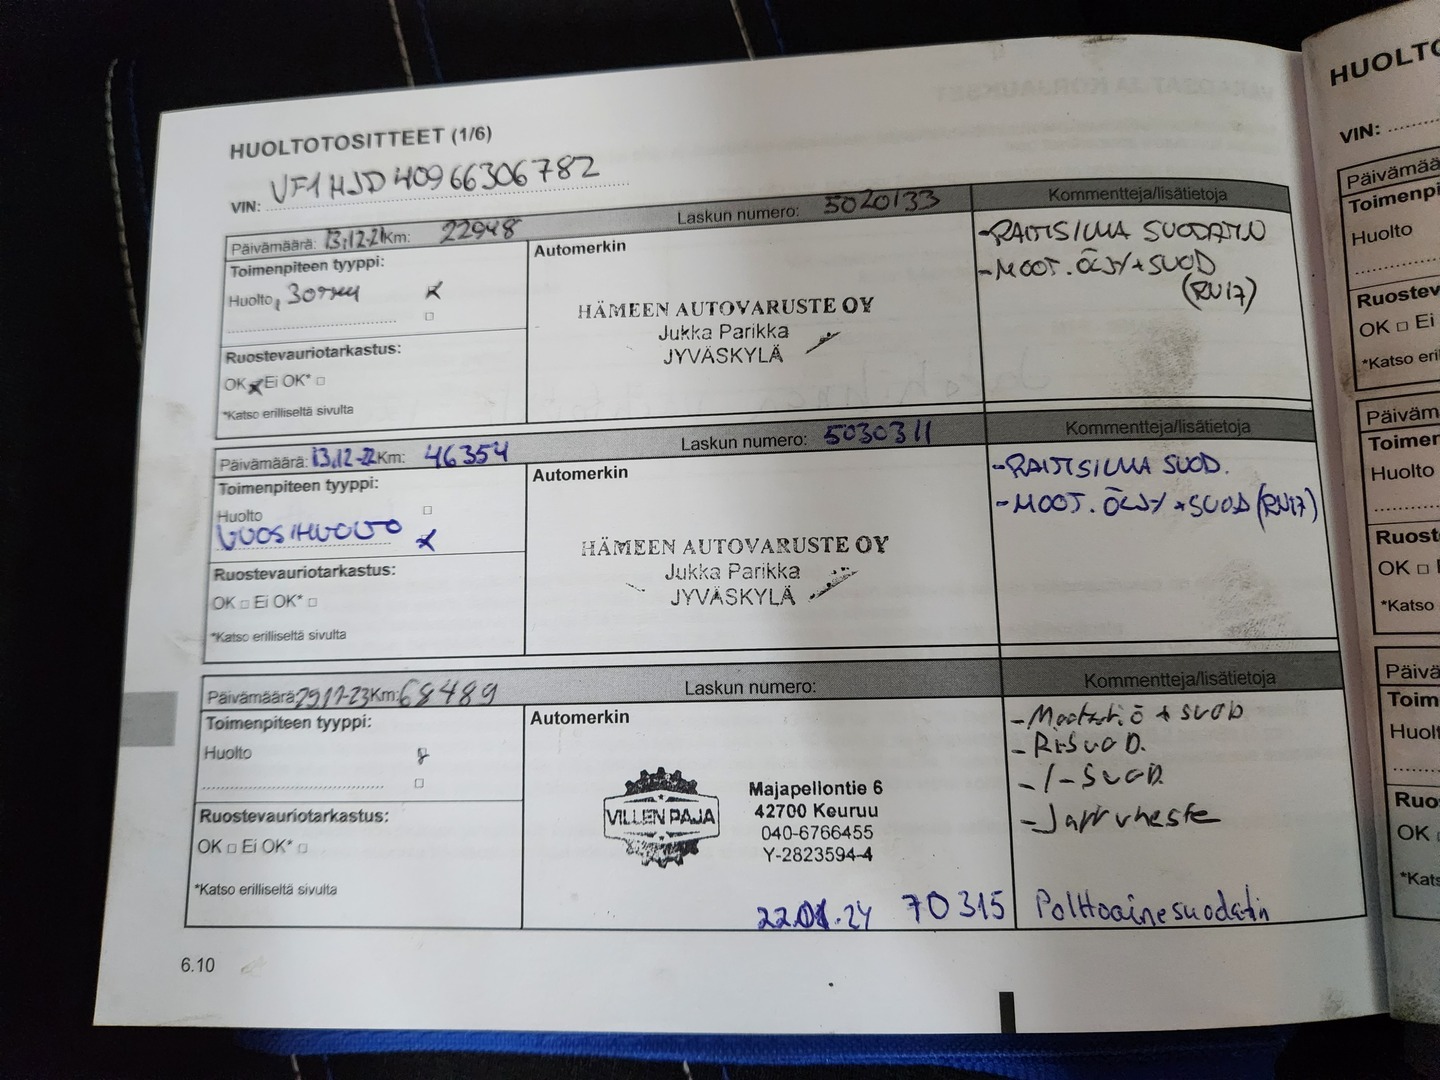 HUOLTOTOSITTEET (1/6)
VIN: VF1HJD40966306782
Päivämäärä: 13.12-21 Km: 22948 Laskun numero: 5020133 Kommentteja/lisätietoja
Toimenpiteen tyyppi:
Huolto, 30tkm
Ruostevauriotarkastus:
OK Ei OK* □
*Katso erilliseltä sivulta
Automerkin
HÄMEEN AUTOVARUSTE OY
Jukka Parikka
JYVÄSKYLÄ
-RAITISILMA SUODATIN
-MOOT.ÖLJY+SUOD
(RN17)
Päivämäärä: 13.12-22 Km: 46354 Laskun numero: 5030311 Kommentteja/lisätietoja
Toimenpiteen tyyppi:
Huolto □
VUOSIHUOLTO
Ruostevauriotarkastus:
OK □ Ei OK* □
*Katso erilliseltä sivulta
Automerkin
HÄMEEN AUTOVARUSTE OY
Jukka Parikka
JYVÄSKYLÄ
-RAITISILMA SUOD.
-MOOT.ÖLJY+SUOD (RN17)
Päivämäärä: Km: 68489 Laskun numero: Kommentteja/lisätietoja
Toimenpiteen tyyppi:
Huolto
Ruostevauriotarkastus:
OK □ Ei OK* □
*Katso erilliseltä sivulta
Automerkin
VILLEN PAJA
Majapellontie 6
42700 Keuruu
040-6766455
Y-2823594-4
- + suod
-Ri-SUOD.
-I-SUOD.
-Jarruneste
22.01.24 70315 Polttoainesuodatin
6.10
HUOLTO
VIN:
Päivämää
Toimenpi
Huolto
Ruostev
OK □ Ei
*Katso eril
Päiväm
Toimer
Huolto
Ruost
OK □ E
*Katso
Päivä
Toim
Huol
Ruo
OK
*Kats